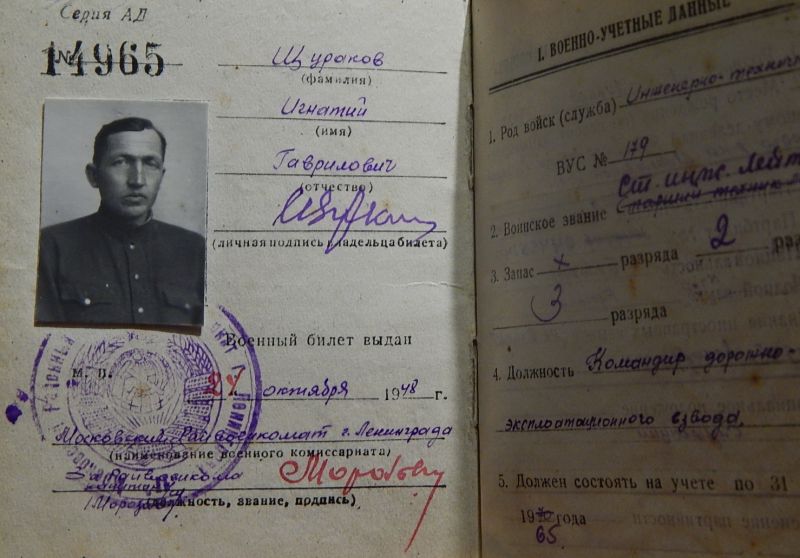 Серия АД
№ 14965
Щураков
(фамилия)
Игнатий
(имя)
Гаврилович
(отчество)
(личная подпись владельца билета)
Военный билет выдан
М. П.
27 октября 1948 г.
Московский Райвоенкомат г. Ленинграда
(наименование военного комиссариата)
За Райвоенкома
(должность, звание, подпись)
I. ВОЕННО-УЧЕТНЫЕ ДАННЫЕ
1. Род войск (служба) Инженерно-технич
ВУС № 179
Ст. инж. Лейт
2. Воинское звание Старший техник
3. Запас х разряда 2 ра
3 разряда
4. Должность Командир дорожно-
эксплоатационного взвода.
5. Должен состоять на учете по 31
19 года
65